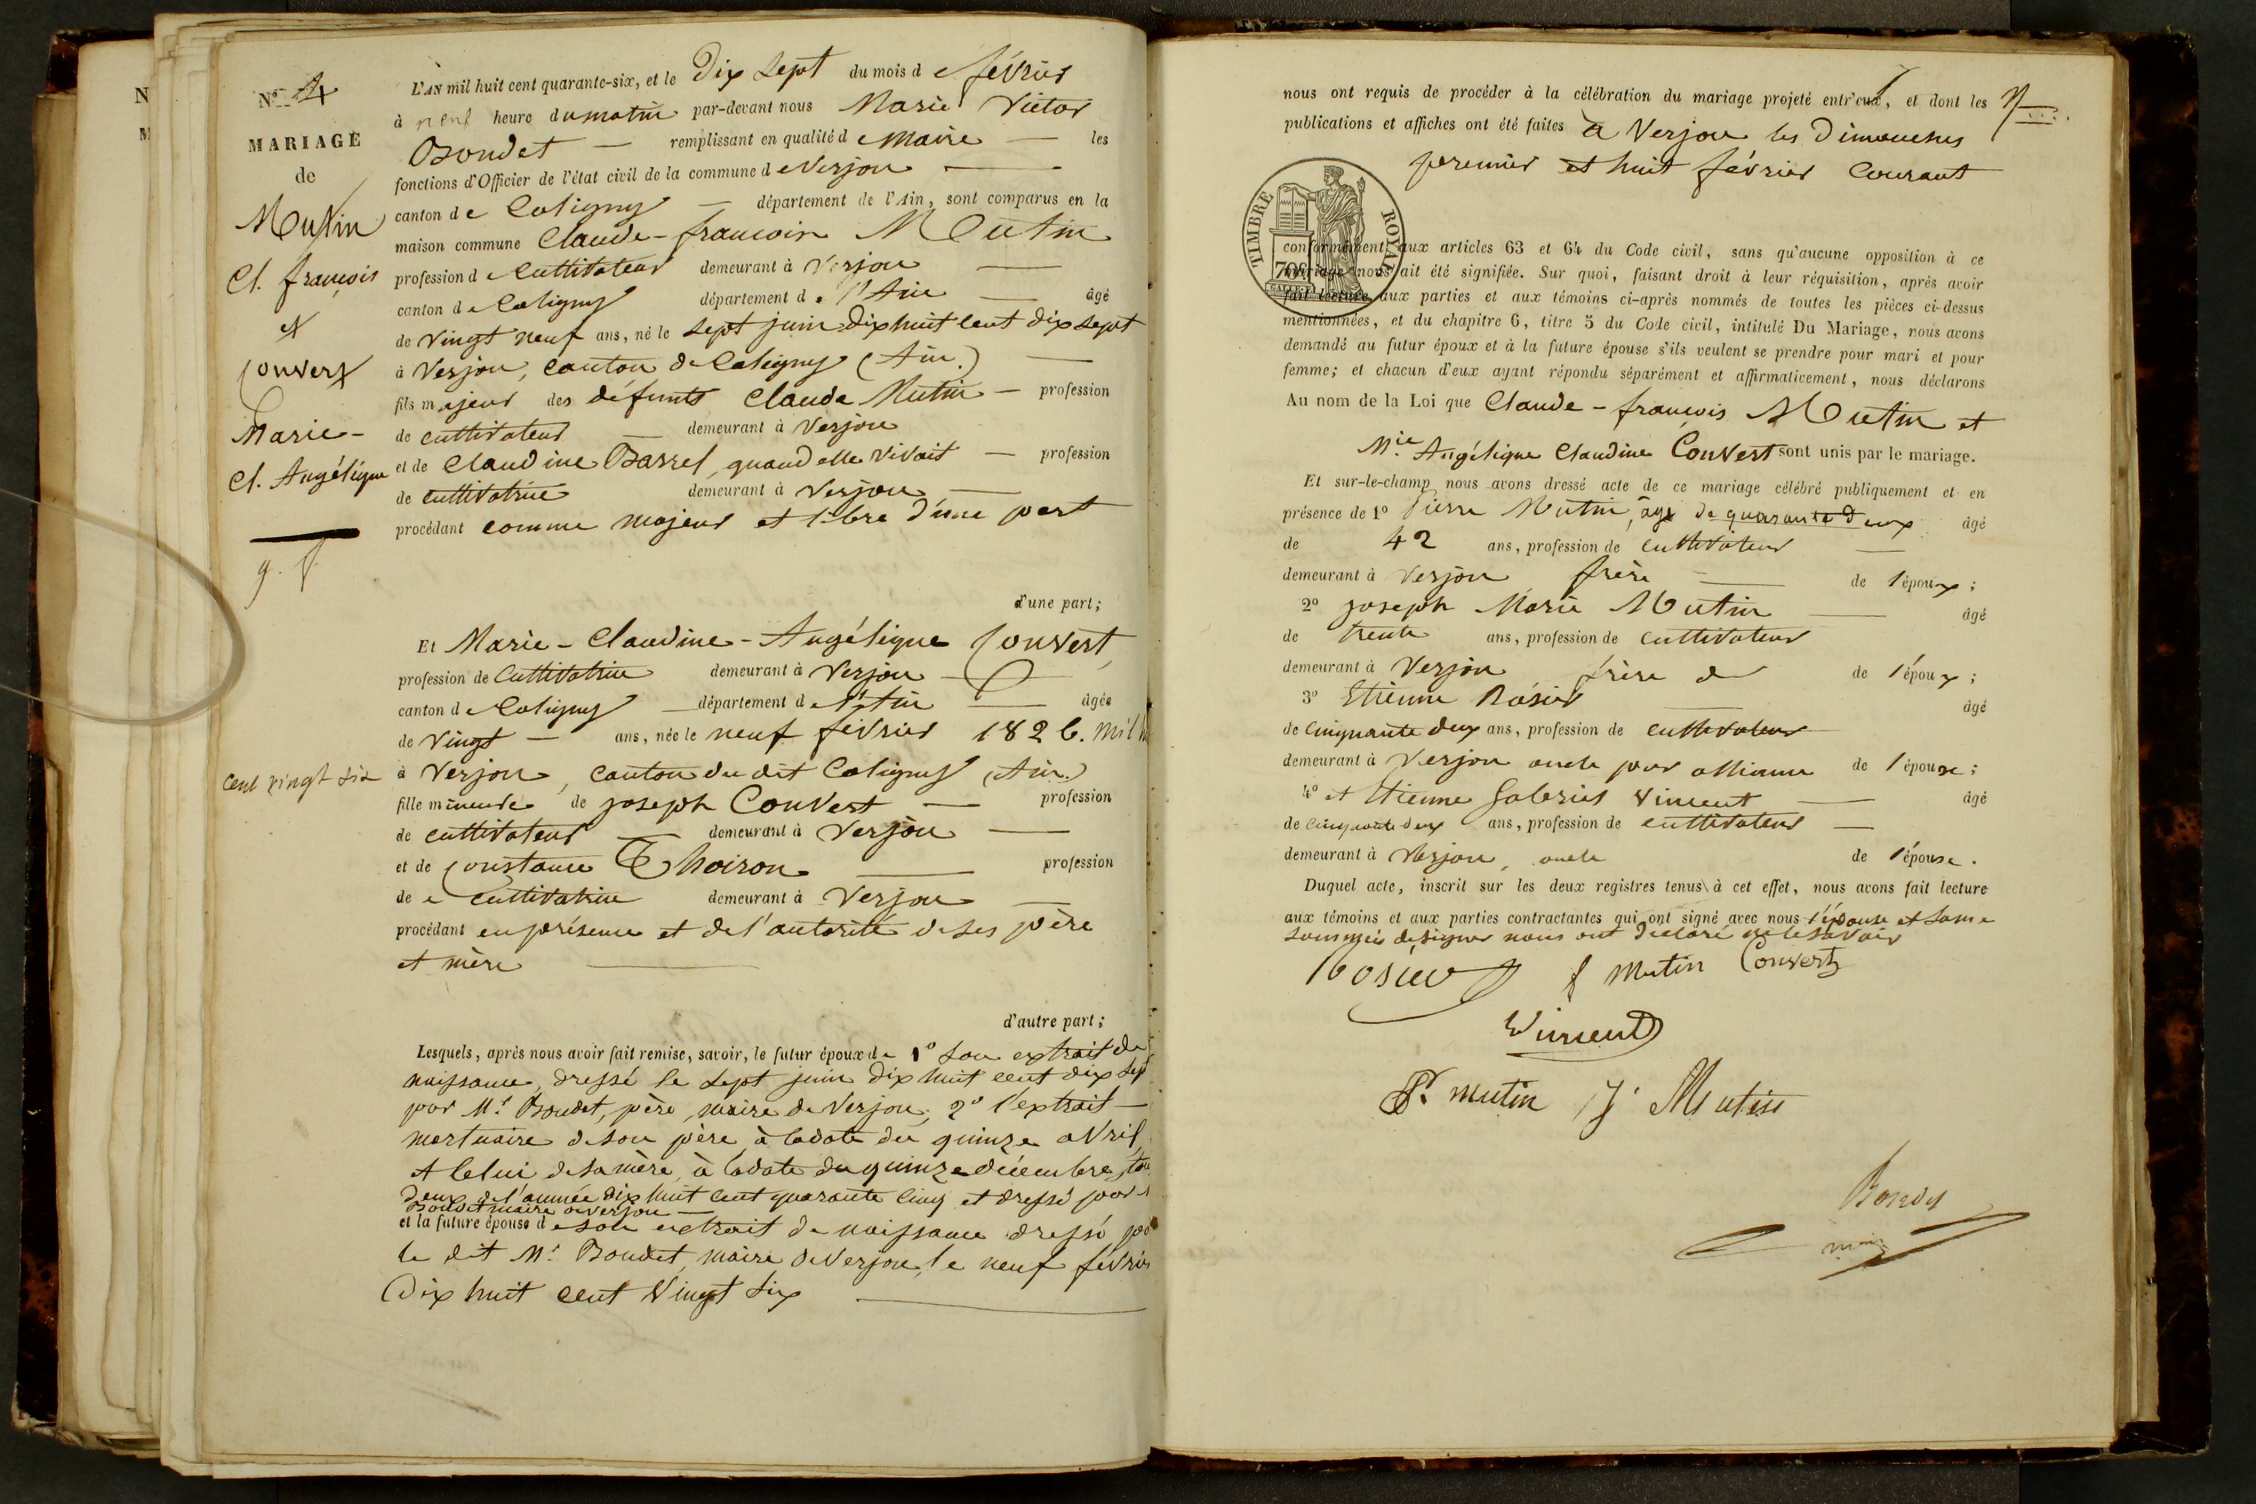 N
M
N° 4
MARIAGE
de
Mutin
Cl. françois
et
Convert
Marie-
Cl. Angélique
g. f.
L'AN mil huit cent quarante-six, et le Dix sept du mois de février
à neuf heure du matin par-devant nous Marie Victor
Bondet — remplissant en qualité de Maire — les
fonctions d'Officier de l'état civil de la commune de Verjon —
canton de Coligny — département de l'Ain, sont comparus en la
maison commune Claude-françois Mutin
profession de Cultivateur demeurant à Verjon —
canton de Coligny département de l'Ain — âgé
de vingt neuf ans, né le sept juin dix huit cent dix sept
à Verjon, canton de Coligny (Ain.) —
fils majeur des défunts Claude Mutin — profession
de cultivateur — demeurant à Verjon
et de Claudine Barrel, quand elle vivait — profession
de cultivatrice demeurant à Verjon —
procédant comme majeur et libre d'une part
d'une part;
Et Marie-Claudine-Angélique Convert,
profession de Cultivatrice demeurant à Verjon —
canton de Coligny — département de l'Ain — âgée
de vingt — ans, née le neuf février 1826. mil h
cent vingt six
à Verjon, canton du dit Coligny (Ain.)
fille mineure de joseph Convert — profession
de cultivateur — demeurant à Verjon —
et de Constance Thoiron — profession
de cultivatrice demeurant à Verjon —
procédant en présence et de l'autorité de ses père
et mère —
d'autre part;
Lesquels, après nous avoir fait remise, savoir, le futur époux de 1° son extrait de
naissance, dressé le sept juin dix huit cent dix sept
par Mr Bondet, père, maire de Verjon, 2° l'extrait —
mortuaire de son père à la date du quinze avril,
et celui de sa mère, à la date du quinze décembre, tou
deux de l'année dix huit cent quarante cinq et dressé par
Bondet maire de Verjon —
et la future épouse de son extrait de naissance dressé, par
le dit Mr Bondet, maire de Verjon, le neuf février
Dix huit cent Vingt six —
nous ont requis de procéder à la célébration du mariage projeté entr'eux, et dont les
publications et affiches ont été faites à Verjon les Dimanches
premier et huit février courant
TIMBRE ROYAL
70c
conformément aux articles 63 et 64 du Code civil, sans qu'aucune opposition à ce
mariage nous ait été signifiée. Sur quoi, faisant droit à leur réquisition, après avoir
fait lecture aux parties et aux témoins ci-après nommés de toutes les pièces ci-dessus
mentionnées, et du chapitre 6, titre 5 du Code civil, intitulé Du Mariage, nous avons
demandé au futur époux et à la future épouse s'ils veulent se prendre pour mari et pour
femme; et chacun d'eux ayant répondu séparément et affirmativement, nous déclarons
Au nom de la Loi que Claude-françois Mutin et
Mie Angélique Claudine Convert sont unis par le mariage.
Et sur-le-champ nous avons dressé acte de ce mariage célébré publiquement et en
présence de 1° Pierre Mutin, âgé de quarante deux âgé
de 42 ans, profession de cultivateur —
demeurant à Verjon frère — de l'époux;
2° joseph Marie Mutin — âgé
de trente ans, profession de cultivateur
demeurant à Verjon frère de de l'époux;
3° Etienne Rosier — âgé
de cinquante deux ans, profession de cultivateur
demeurant à Verjon oncle par alliance de l'épouse;
4° et Etienne Gabriel Vincent — âgé
de cinquante deux ans, profession de cultivateur —
demeurant à Verjon, oncle de l'épouse.
Duquel acte, inscrit sur les deux registres tenus à cet effet, nous avons fait lecture
aux témoins et aux parties contractantes qui ont signé avec nous l'épouse et sa mère
sommées de signer nous ont déclaré ne le savoir
Rosier f mutin Convert
Vincent
P. mutin J. Mutin
Bondet
maire